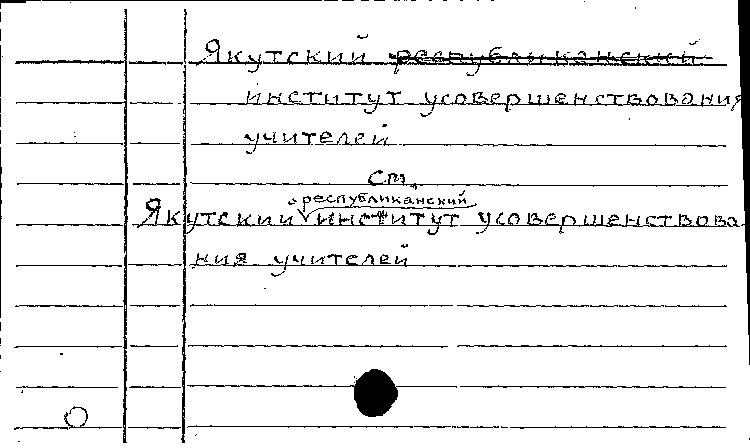 Якутский республиканский
институт усовершенствования
учителей
см.
республиканский
Якутский институт усовершенствова
ния учителей